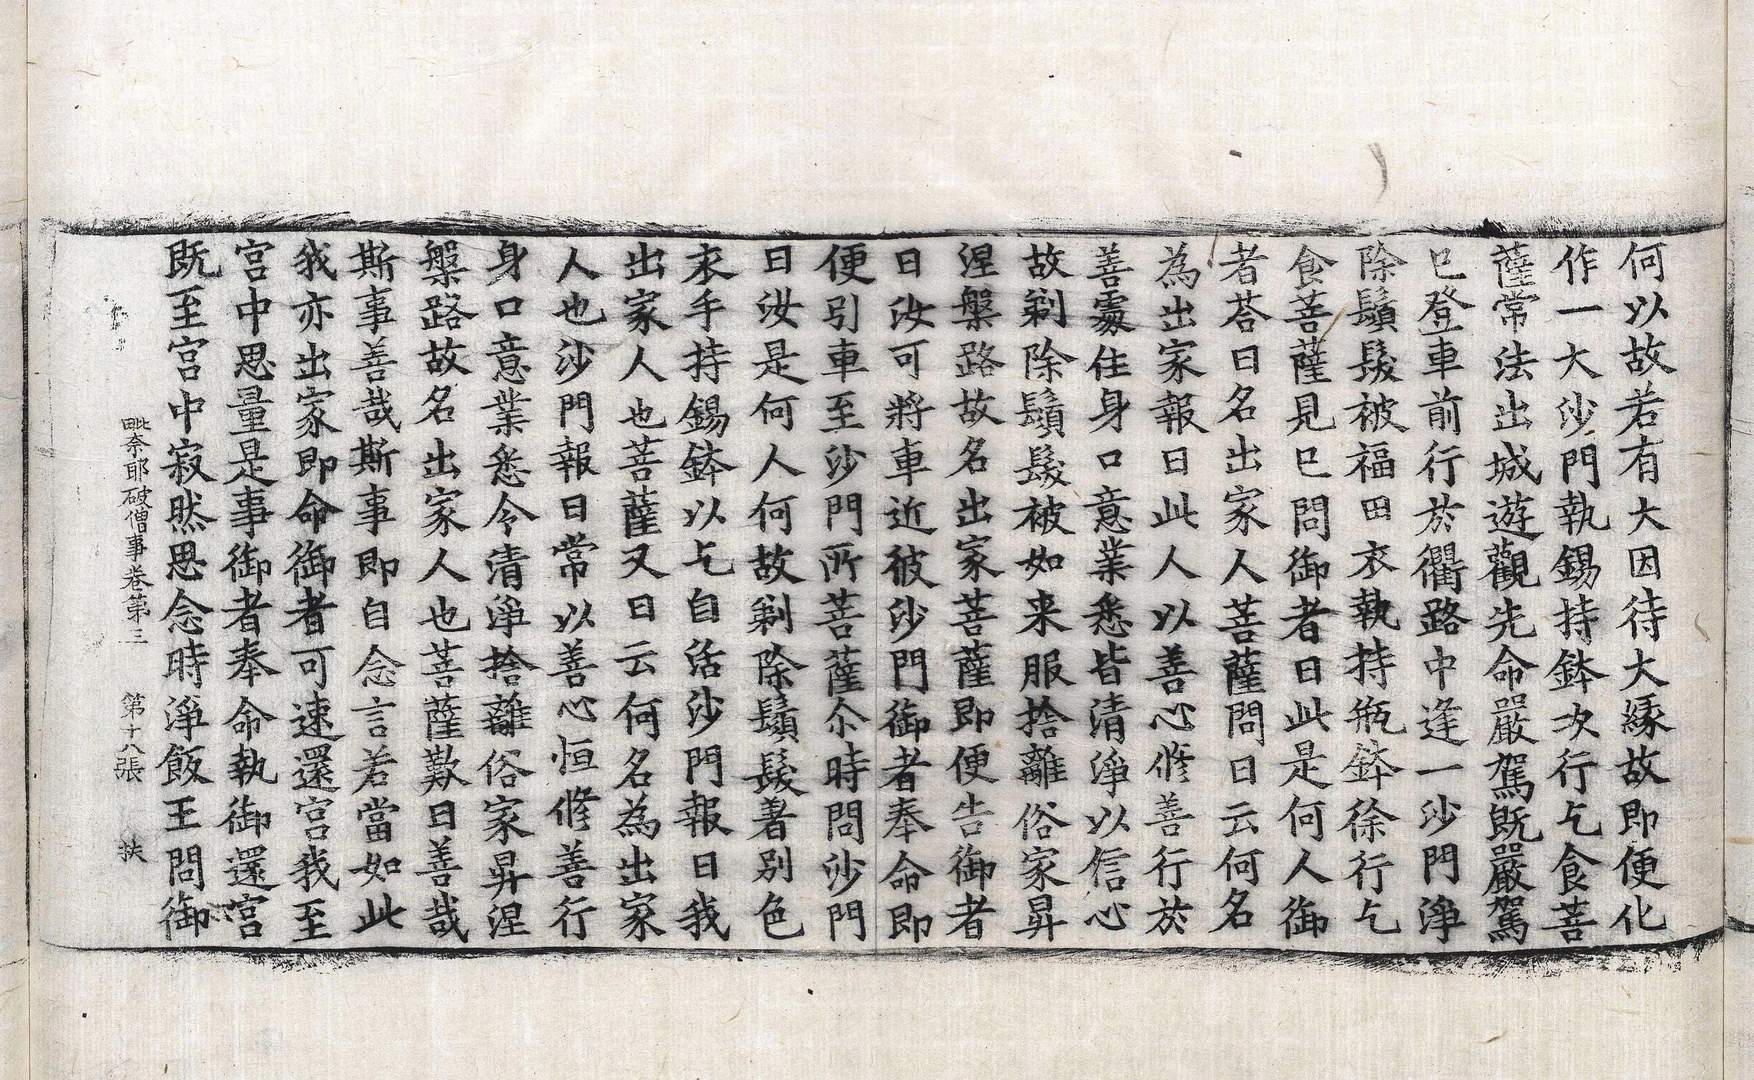 何以故若有大因待大縁故即便化
作一大沙門執錫持鉢次行乞食菩
薩常法出城遊觀先命嚴駕既嚴駕
已登車前行於衢路中逢一沙門淨
除鬚髮被福田衣執持瓶鉢徐行乞
食菩薩見已問御者曰此是何人御
者荅曰名出家人菩薩問曰云何名
為出家報曰此人以善心修善行於
善䖏住身口意業悉皆清淨以信心
故剃除鬚髮被如来服捨離俗家昇
涅槃路故名出家菩薩即便告御者
曰汝可將車近彼沙門御者奉命即
便引車至沙門所菩薩尒時問沙門
曰汝是何人何故剃除鬚髮著別色
衣手持錫鉢以乞自活沙門報曰我
出家人也菩薩又曰云何名為出家
人也沙門報曰常以善心恒修善行
身口意業悉令清淨捨離俗家昇涅
槃路故名出家人也菩薩歎曰善哉
斯事善哉斯事即自念言若當如此
我亦出家即命御者可速還宮我至
宮中思量是事御者奉命執御還宮
既至宮中寂然思念時淨飯王問御
毗奈耶破僧事卷第三　第十八張　扶